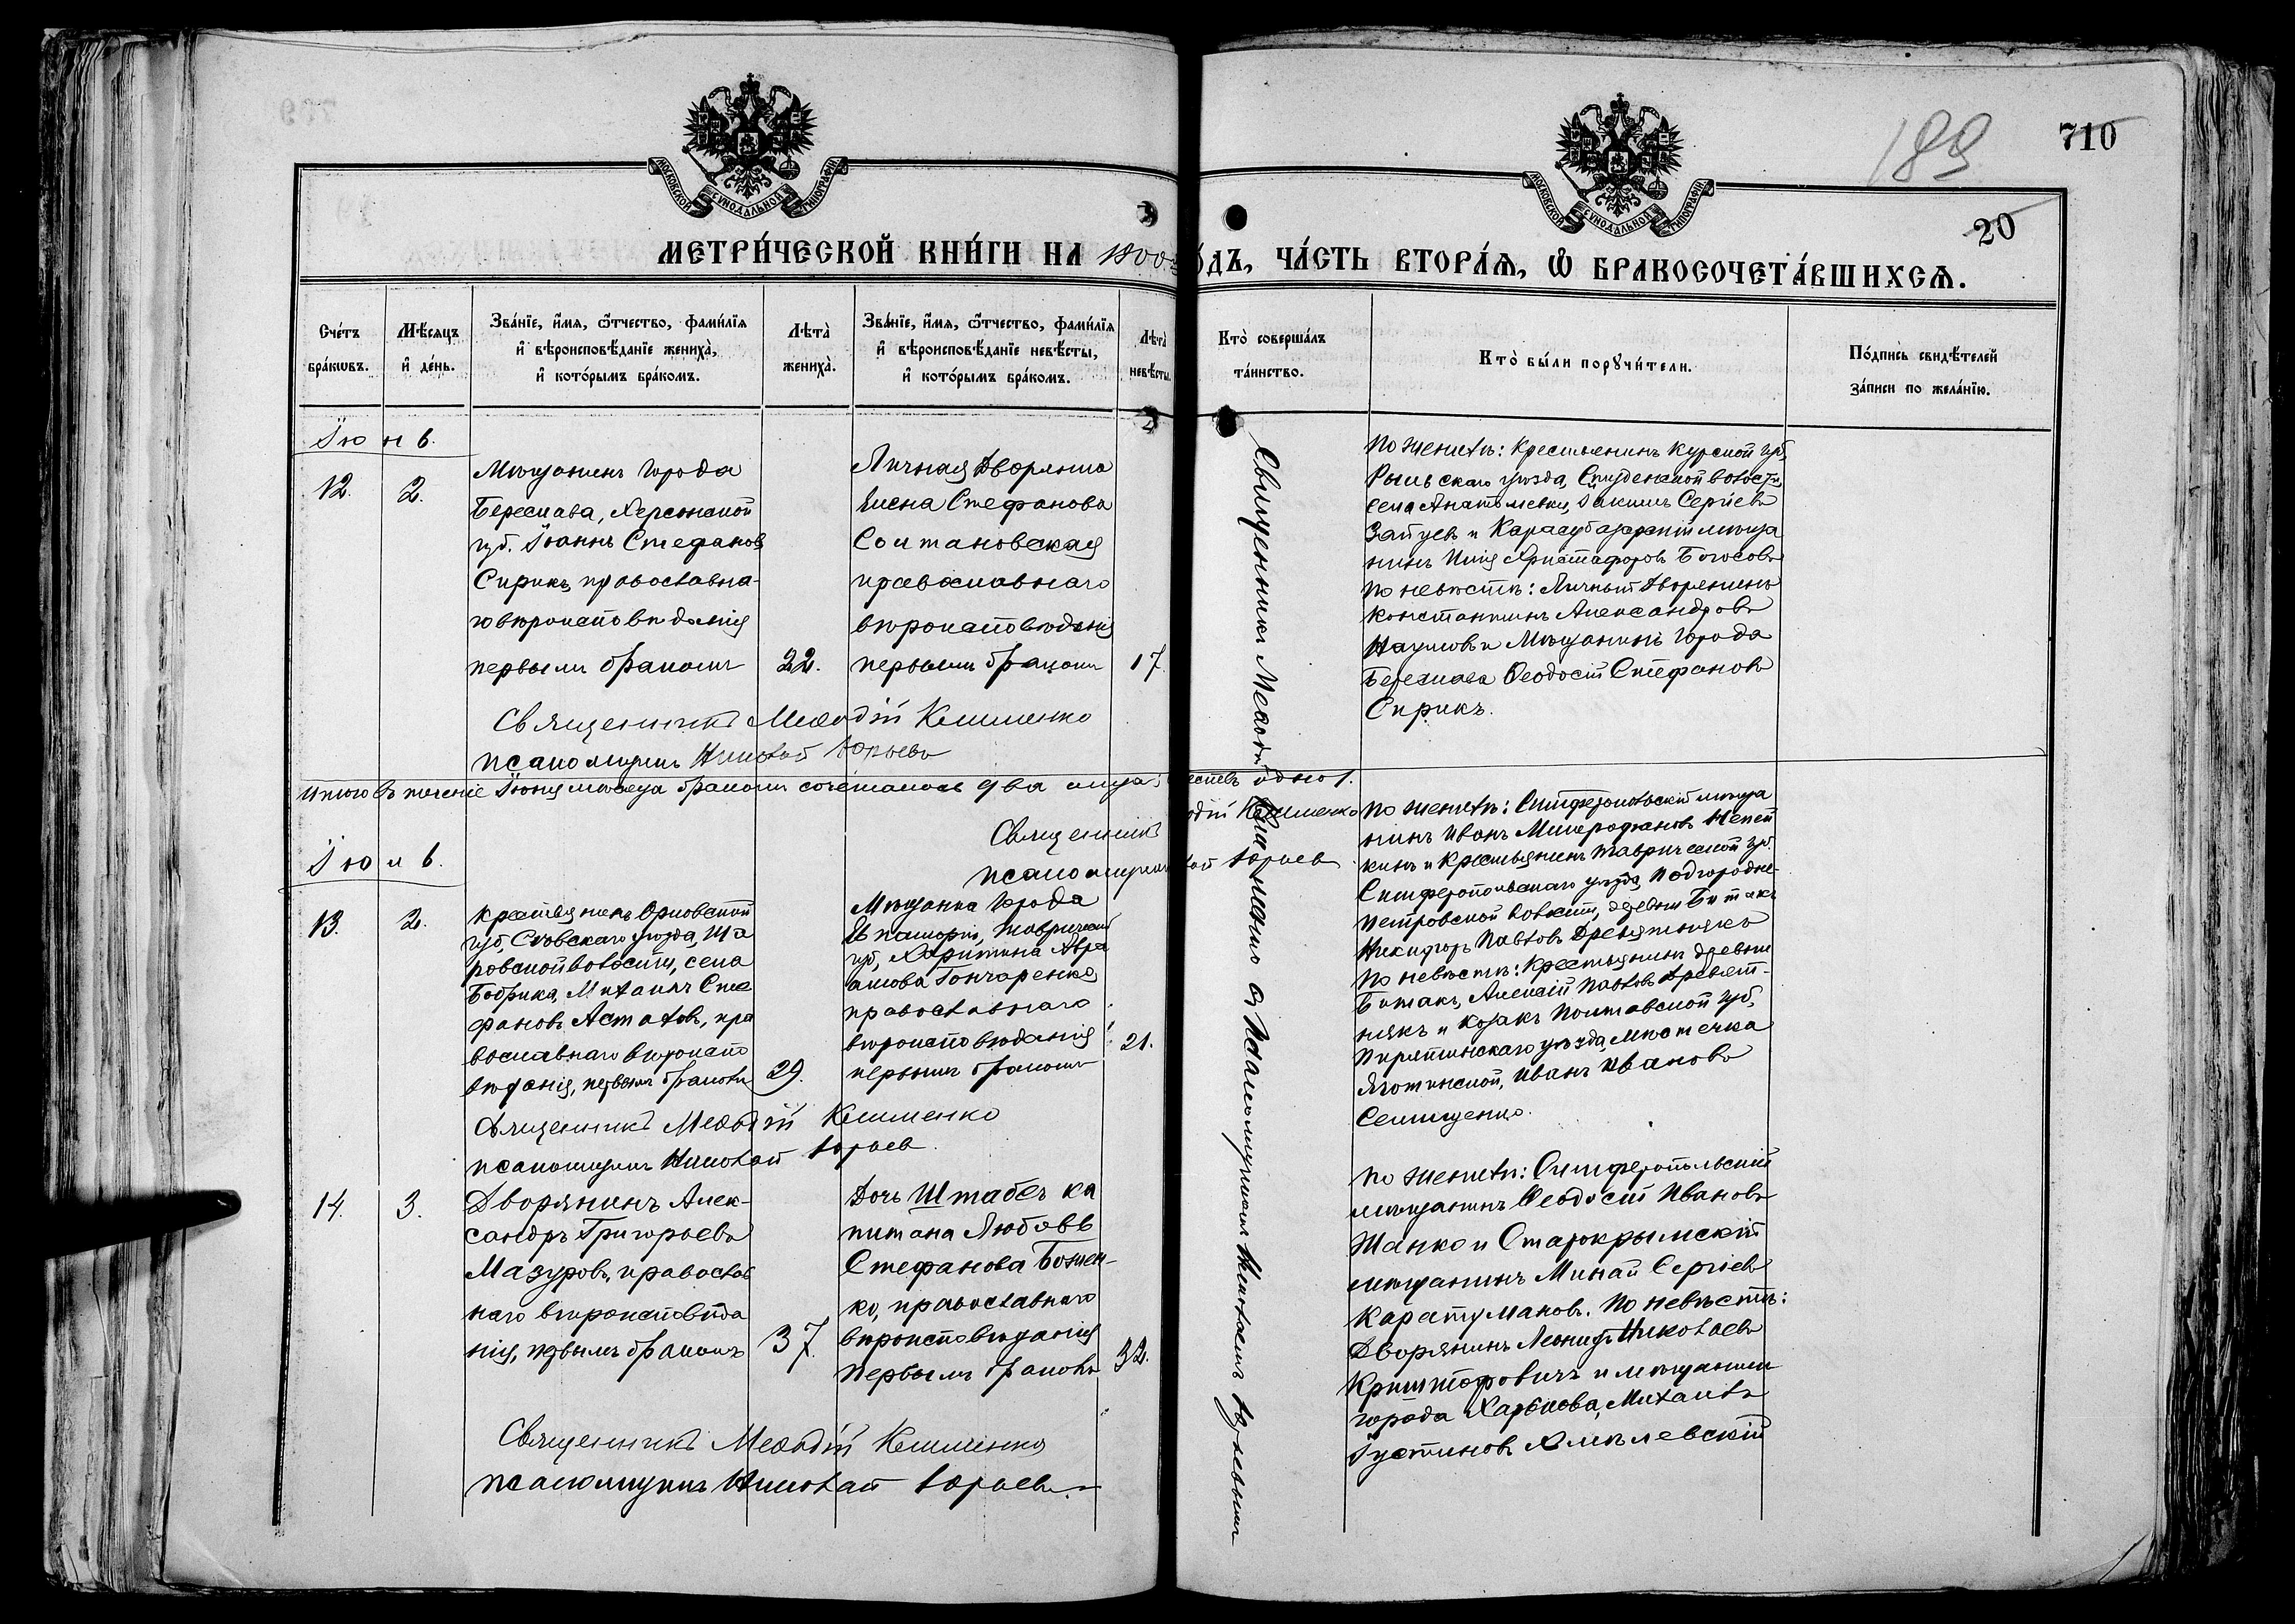 189
710
20
МОСКОВСКОЙ СУНОДАЛЬНОЙ ТИПОГРАФІИ
МОСКОВСКОЙ СУНОДАЛЬНОЙ ТИПОГРАФІИ
МЕТРИ́ЧЕСКОЙ КНИ́ГИ НА 1800
О́ДЪ, ЧА́СТЬ ВТОРА́Я, Ѡ БРАКОСОЧЕТА́ВШИХСЯ.
Сче́тъ
бра́кѡвъ.
Мѣ́сяцъ
и҆ де́нь.
Зва́нїе, и҆́мя, ѻ҆́тчество, фами́лїя
и҆ вѣроисповѣ́данїе жениха̀,
и҆ кото́рымъ бра́комъ.
Лѣта̀
жениха̀.
Зва́нїе, и҆́мя, ѻ҆́тчество, фами́лїя
и҆ вѣроисповѣ́данїе невѣ́сты,
и҆ кото́рымъ бра́комъ.
Лѣта̀
невѣ́сты.
Кто̀ соверша́лъ
та́инство.
Кто̀ бы́ли порꙋчи́тели.
По́дпись свидѣ́телей
за́писи по жела́нїю.
Іюнь.
12.
2.
Мѣщанинъ города
Береслава, Херсонской
губ. Іоаннъ Стефановъ
Сирикъ, православна-
го вѣроисповѣданія
первымъ бракомъ
22.
Личная Дворянка
Елена Стефанова
Солтановская
православнаго
вѣроисповѣданія
первымъ бракомъ
17.
Священникъ Меѳодій Клименко
псаломщикъ Николай Юрьевъ
По женихѣ: Крестьянинъ Курской губ.
Рыльскаго уѣзда, Студенской волости,
села Анатольевки, Іакимъ Сергѣевъ
Зайцевъ и Карасубазарскій мѣща
нинъ Илія Христофоровъ Богосовъ
По невѣстѣ: Личный Дворянинъ
Константинъ Александровъ
Наумовъ и Мѣщанинъ города
Береслава Ѳеодосій Стефановъ
Сирикъ.
Итого въ теченіе Іюня мѣсяца бракомъ сочеталось два лица;
одно 1.
Священникъ
одій Клименко
псаломщикъ
лай Юрьевъ
Іюль.
13.
2.
Крестьянинъ Орловской
губ, Сѣвскаго уѣзда, Ша
ровской волости, села
Бобрика, Михаилъ Сте
фановъ Астаховъ, пра
вославнаго вѣроиспо
вѣданія, первымъ бракомъ
29.
Мѣщанка города
Евпаторіи, Таврической
губ, Харитина Авра
амова Гончаренко
православнаго
вѣроисповѣданія
первымъ бракомъ
21.
Священникъ Меѳодій Клименко
псаломщикъ Николай Юрьевъ.
По женихѣ: Симферопольскій мѣща
нинъ Иванъ Митрофановъ
кинъ и Крестьянинъ Таврической губ.
Симферопольскаго уѣзда, Подгородне-
Петровской волости, деревни Битакъ
Никифоръ Павловъ Древятнякъ
По невѣстѣ: Крестьянинъ деревни
Битакъ, Алексій Павловъ Древят-
някъ и Козакъ Полтавской губ,
Пирятинскаго уѣзда, мѣстечка
Яготинской, Иванъ Ивановъ
Селищенко.
14.
3.
Дворянинъ Алек-
сандръ Григорьевъ
Мазуровъ, православ
наго вѣроисповѣда
нія, первымъ бракомъ
37.
Дочь Штабсъ ка
питана Любовь
Стефанова Божен-
ко, православнаго
вѣроисповѣданія
первымъ бракомъ
32.
Священникъ Меѳодій Клименко
псаломщикъ Николай Юрьевъ.
По женихѣ: Симферопольскій
мѣщанинъ Ѳеодосій Ивановъ
Шанко и Старокрымскій
мѣщанинъ Минай Сергіевъ
Каратумановъ. По невѣстѣ:
Дворянинъ Леонидъ Николаевъ
Криштофовичъ и мѣщанинъ
города Харькова, Михаилъ
Іустиновъ Хмѣлевскій
Священникъ Меѳодій Клименко съ Псаломщикомъ Николаемъ Юрьевымъ